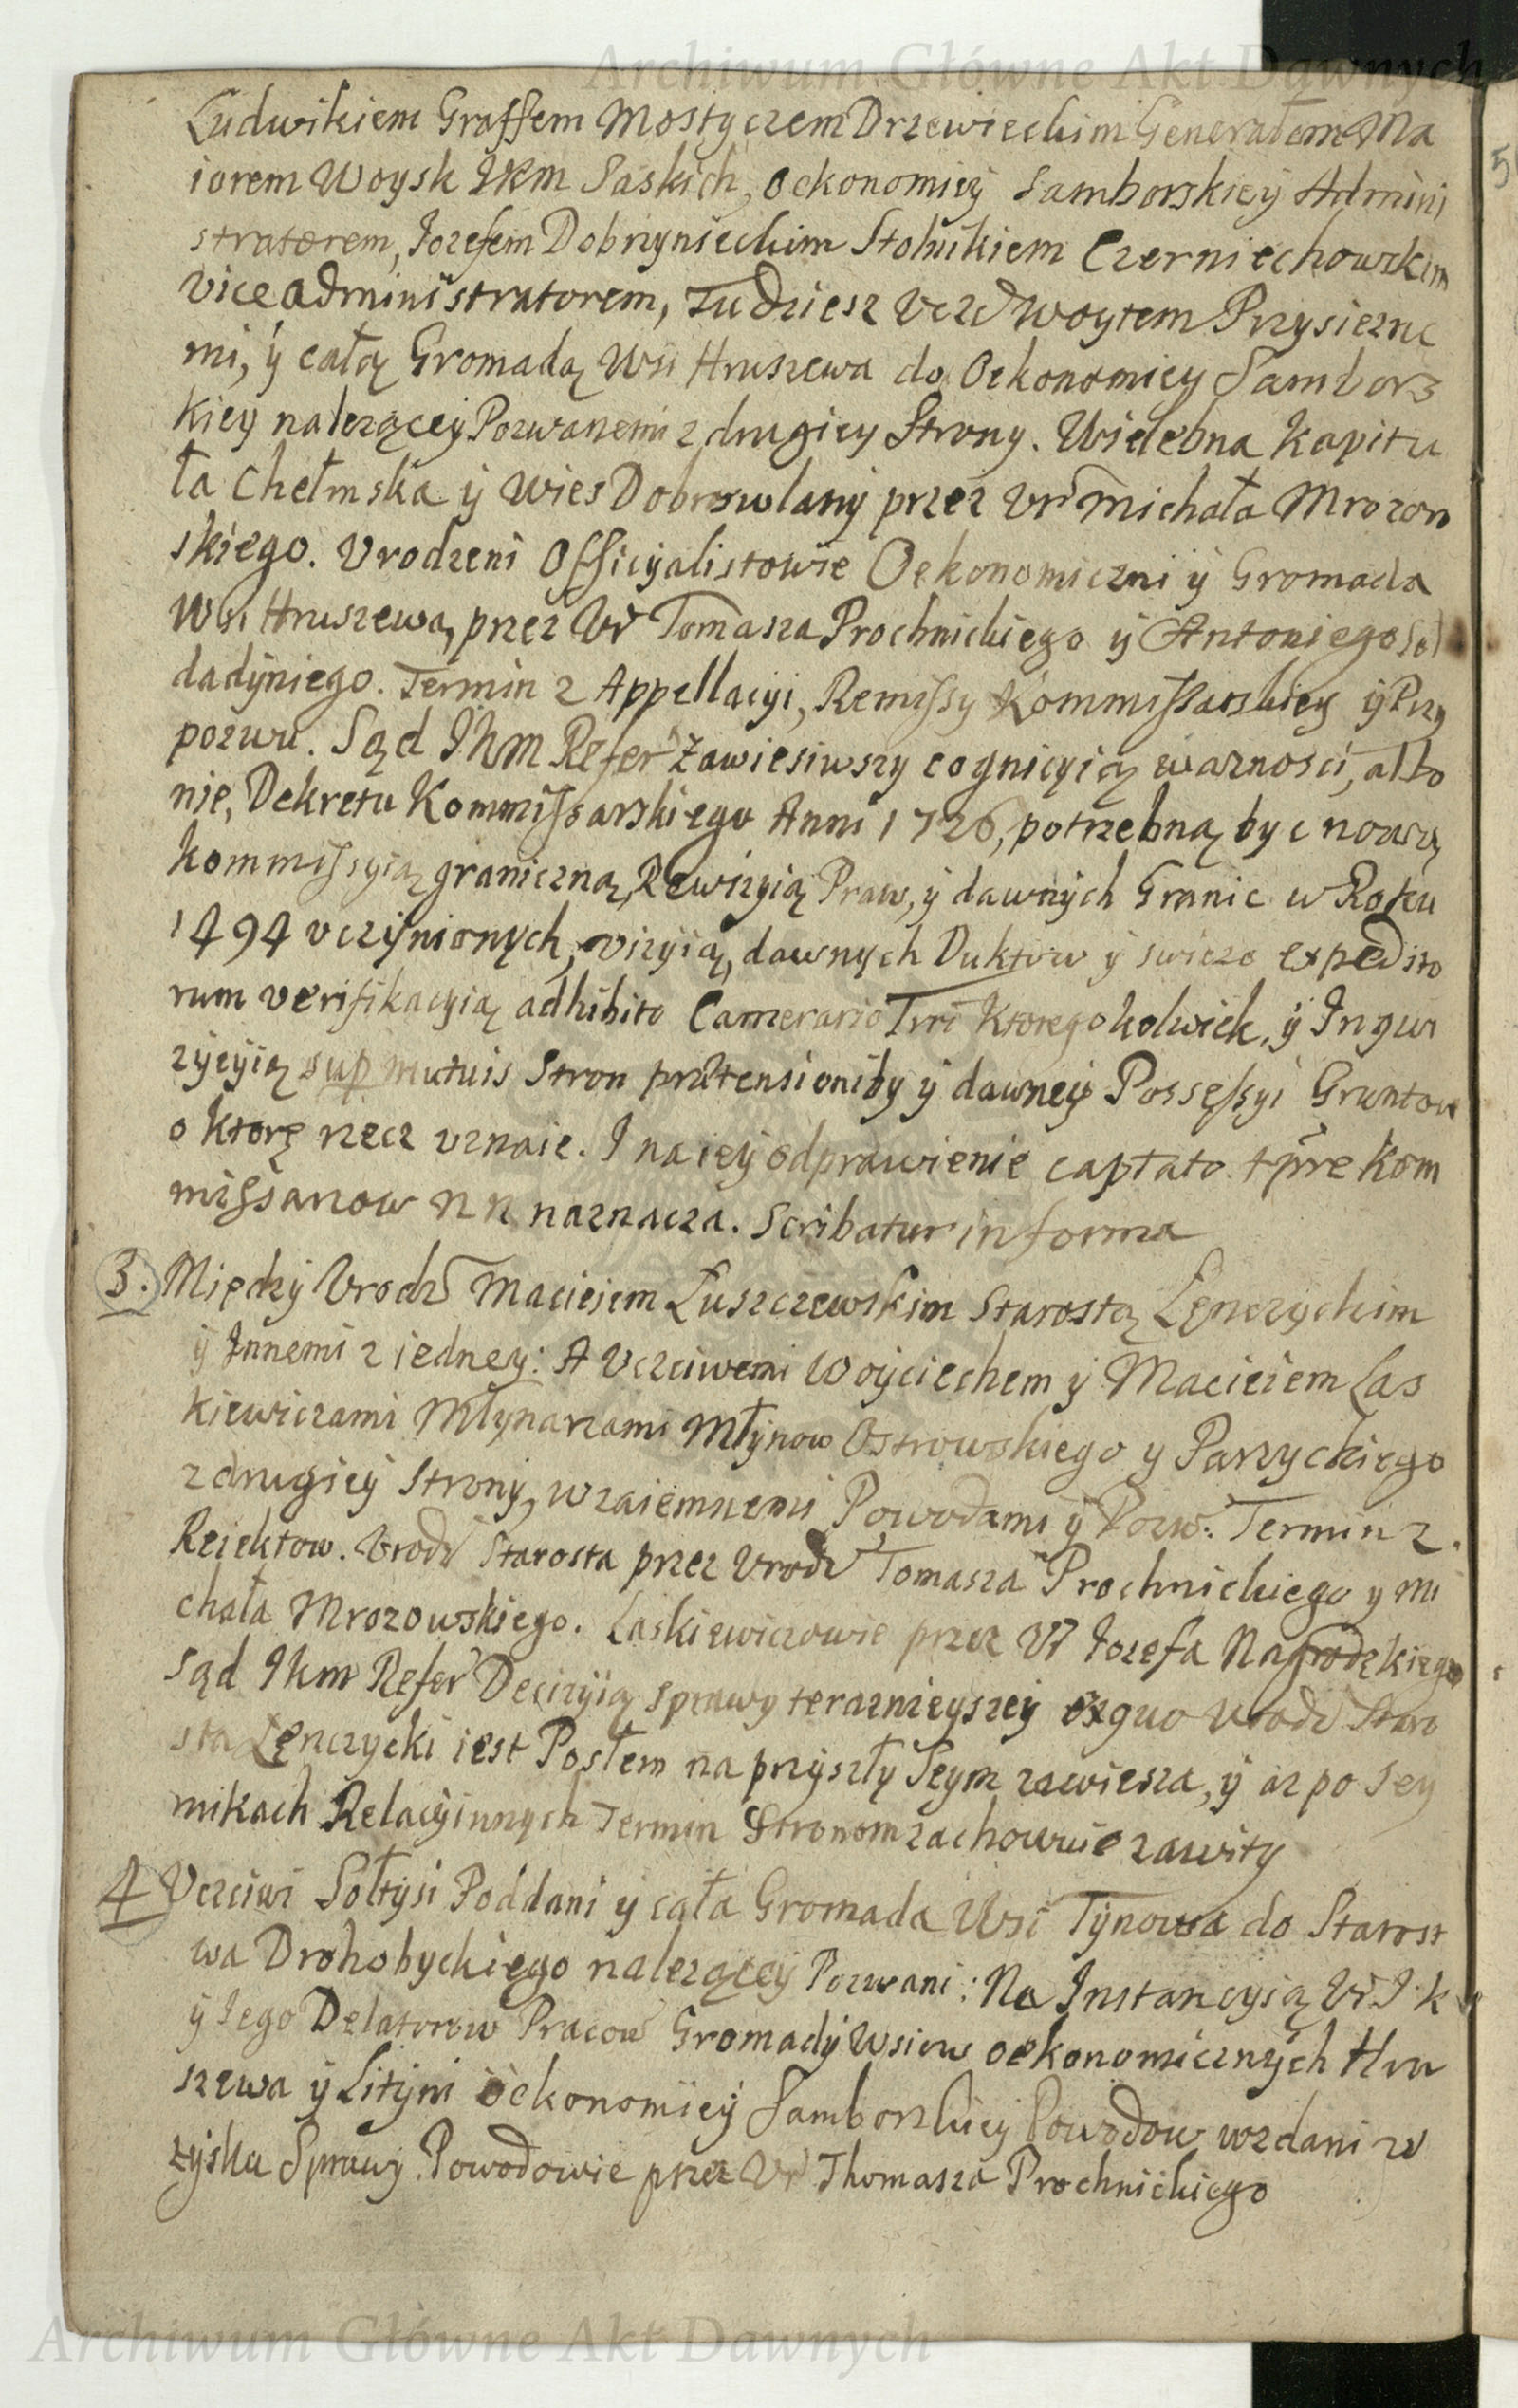 Archiwum Główne Akt Dawnych
Ludwikiem Graffem Mostyczem Drzewieckim Generałem Ma
iorem Woysk JKM Saskich, Oekonomiey Samborskiey Admini
stratorem, Jozefem Dobrzynieckim Stolnikiem Czerniechowskim
vice administratorem, Tudziesz Vczd Woytem Przysiezne
mi, y całą Gromadą Wsi Hruszewa do Oekonomiey Sambors
kiey nalezącey Pozwanemi z drugiey Strony. Wielebna Kapitu
ła Chełmska y Wies Dobrowlany przez Vr Michała Mrozow
skiego. Vrodzeni Officyalistowie Oekonomiczni y Gromada
Wsi Hruszewa, przez Vr Tomasza Prochnickiego y Antoniego Sol
dadyniego. Termin z Appellacyi, Remissy Kommissarskiey y Przy
pozwu. Sąd JKM Refer Zawiesiwszy cognicyią wazności, albo
nie, Dekretu Kommissarskiego Anni 1726, potrzebną byc nową
Kommissyią graniczną, Rewizyią Praw, y dawnych Granic w Roku
1494 vczynionych, vizyią, dawnych Duktow y swiezo expedito
rum verifikacyią adhibito Camerario Trri Ktoregokolwiek, y Inqwi
zycyią sup mutuis Stron prætensioniby y dawney Possessyi Gruntow
o ktorę rzecz vznaie. I na iey odprawienie captato tpre Kom
missarzow N N naznacza. Scribatur in forma
3. Między Vrodz Maciejem Łuszczewskim Starostą Lęnczyckim
y Innemi z iedney: A Vczciwemi Woyciechem y Maciejem Las
kiewiczami Młynarzami Młynow Ostrowskiego y Parzyckiego
z drugiey Strony, wzaiemnemi Powodami y Pozw: Termin z
Rejektow. Vrodz Starosta przez Vrodz Tomasza Prochnickiego y Mi
chała Mrozowskiego. Laskiewiczowie przez Vr Jozefa Nagrodzkiego
Sąd JKM Refer Decizyią sprawy terazniejszey exquo Vrodz Staro
sta Lęnczycki iest Posłem na przyszły Seym zawiesza, y az po Sey
mikach Relacyinnych Termin Stronom zachowuie zawity
4 Vczciwi Sołtysi Poddani y cała Gromada Wsi Tynowa do Starost
wa Drohobyckiego nalezącey Pozwani: Na Instancyią Vr J. k
y Jego Delatorow Pracow Gromady Wsiow oekonomicznych Hru
szewa y Lityni oekonomiey Samborskiey Powodow wzdani w
zysku Sprawy. Powodowie przez Vr Thomasza Prochnickiego
Archiwum Główne Akt Dawnych